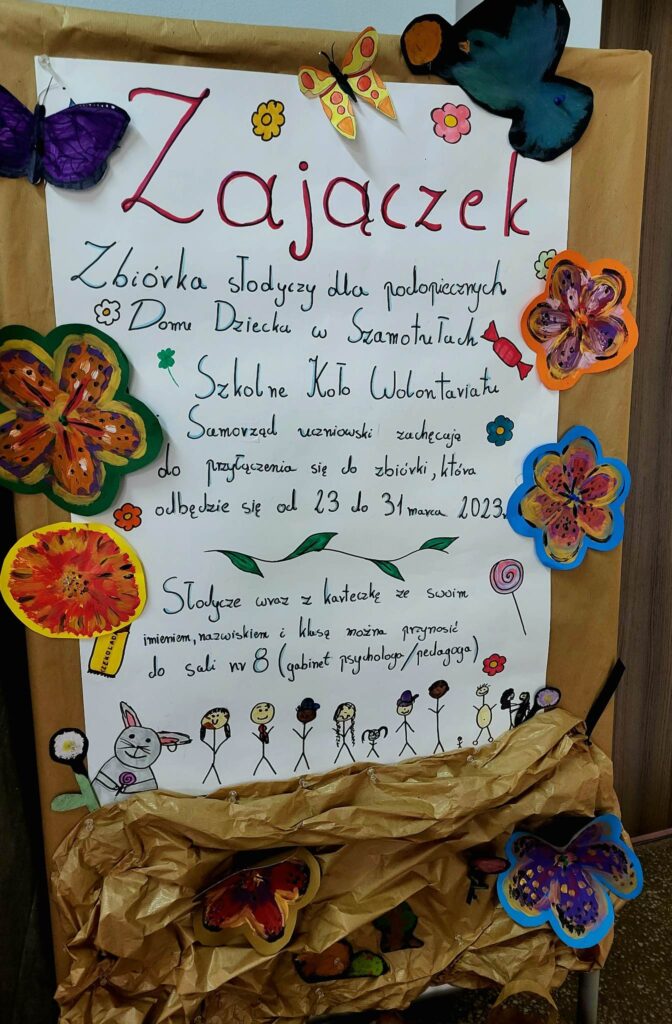 Zajączek
Zbiórka słodyczy dla podopiecznych
Domu Dziecka w Szamotułach
Szkolne Koło Wolontariatu
Samorząd uczniowski zachęcają
do przyłączenia się do zbiórki, która
odbędzie się od 23 do 31 marca 2023r.
Słodycze wraz z karteczką ze swoim
imieniem, nazwiskiem i klasą można przynosić
do sali nr 8 (gabinet psychologa/pedagoga)
CZEKOLADA